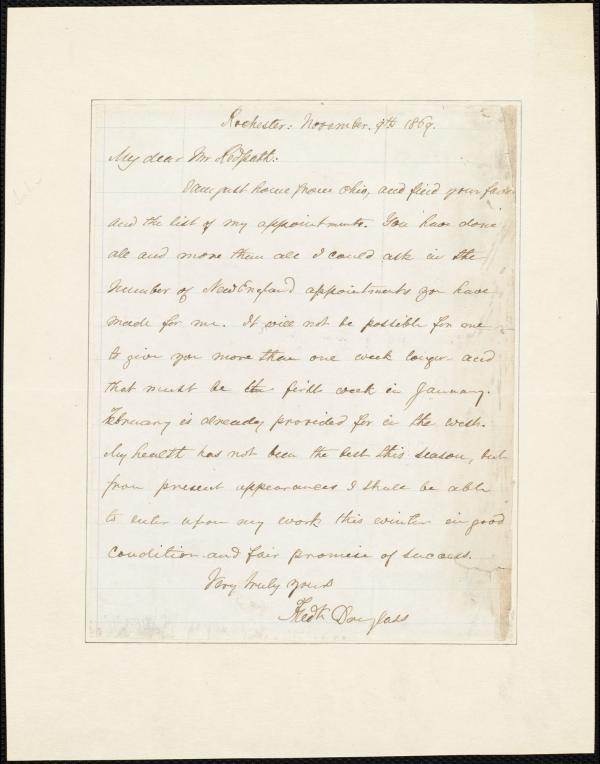 Rochester: November. 9th 1869.
My dear Mr Redpath:
I am just home from Ohio, and find your favor
and the list of my appointments. You have done
all and more than all I could ask in the
number of New England appointments you have
made for me. It will not be possible for me
to give you more than one week longer and
that must be the first week in January.
February is already provided for in the west.
My health has not been the best this season, but
from present appearances I shall be able
to enter upon my work this winter in good
condition and fair promise of success.
Very truly yours
Fredk Douglass